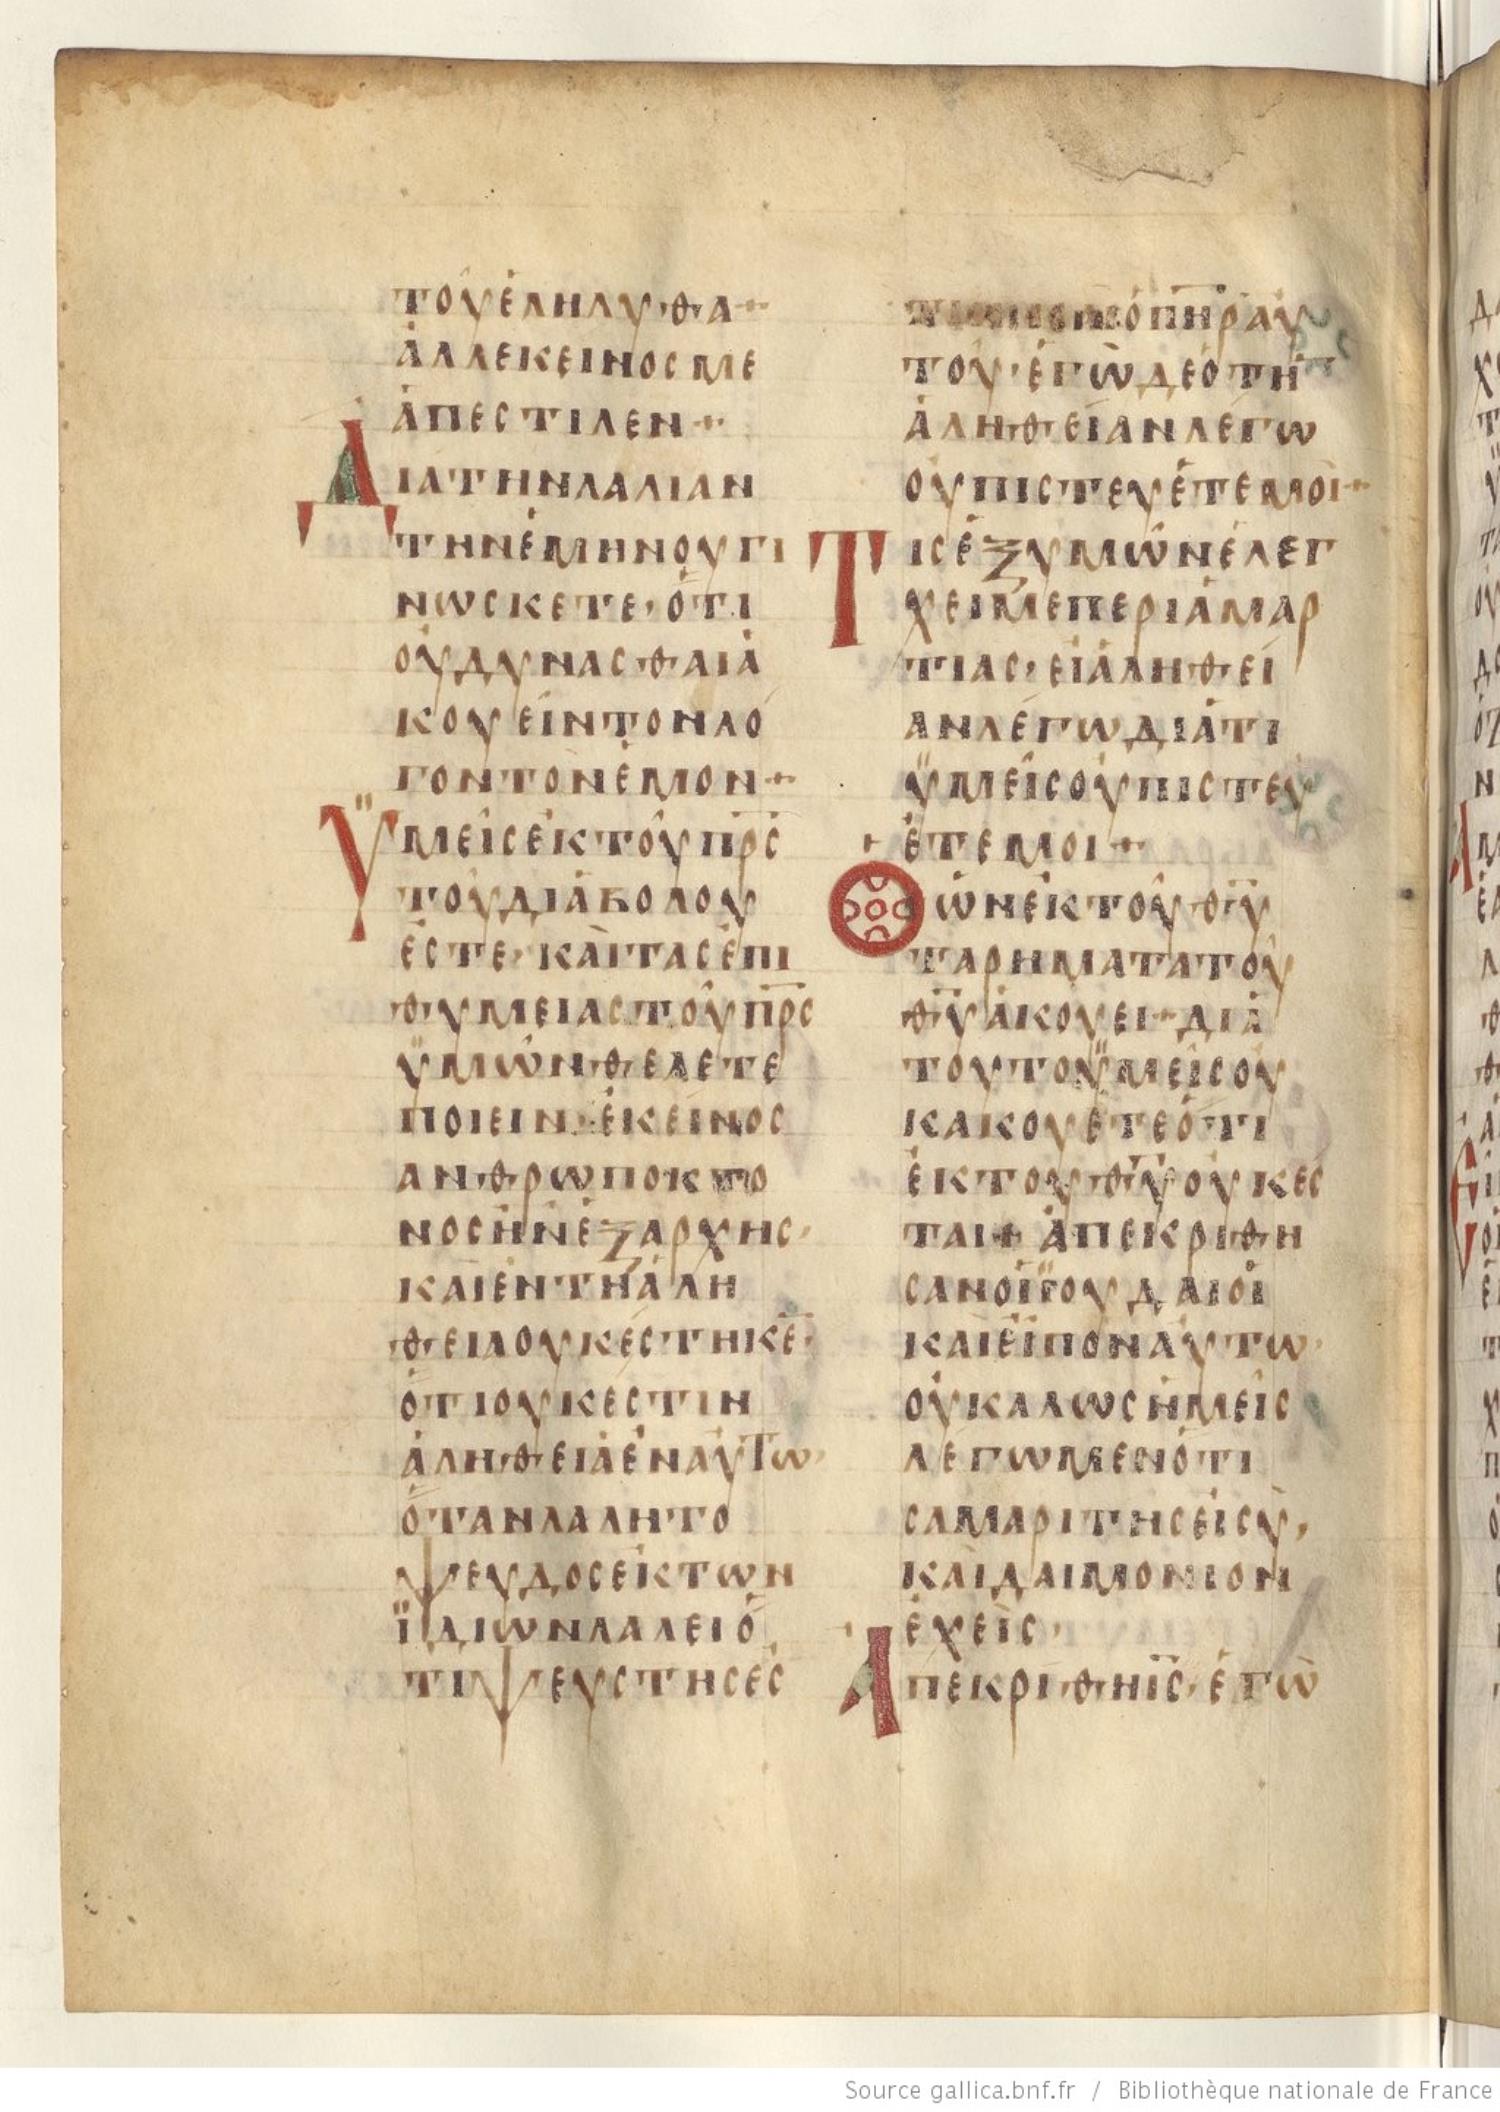 τοῦἐληλυθα·
ἀλλεκεινοςμε
ἀπεστιλεν·
Διατηνλαλιαν
τηνἐμηνουγι
νωσκετε·ὅτι
οὐδυνασθαιἀ
κουειντονλό
γοντονἐμον·
Ϋμεῖςἐκτοῦπρ̅ς̅
τοῦδιαβολου
ἐστε·καὶτασἐπι
θυμειαςτοῦπρ̅ς̅
ϋμῶνθελετε
ποιειν·ἐκεῖνος
ανθρωποκτο
νοςἦνἐξαρχης·
καὶἐντηἀλη
θειαουκἑστηκἐ·
ὅτιουκεστιν
ἀληθειαἐναυτω·
ὅτανλαλητο
ψευδοςἐκτων
ϊδιωνλαλειὅ
τιψευστηςἐς
ὁπηραὐ
τοῦ·ἐγὼδεὅτη
ἀληθείανλεγω
οὐπιστευἐτεμοὶ·
Τισἐξυμῶνἐλεγ
χειμεπεριἁμαρ
τιας·εἰἀληθεί
ανλέγωδιατι
ϋμεῖςοὐπιστεύ
ἐτεμοι·
Ὁὤνἐκτοῦθ̅υ̅
ταρηματατοῦ
θ̅υ̅ἀκουει·διἀ
τουτοϋμεῖςοὐ
κακουἐτεὅτι
ἐκτοῦθ̅υ̅οὐκες
ται·ἀπεκριθη
σανοἱϊουδαιοι
καιεἶποναὐτω·
οὐκαλωςἡμεῖς
λέγωμενὅτι
σαμαριτηςεἶσὺ,
καὶδαιμονιον
ἐχεῖς·
Απεκριθηι̅ς̅·ἐγὼ
Source gallica.bnf.fr / Bibliothèque nationale de France